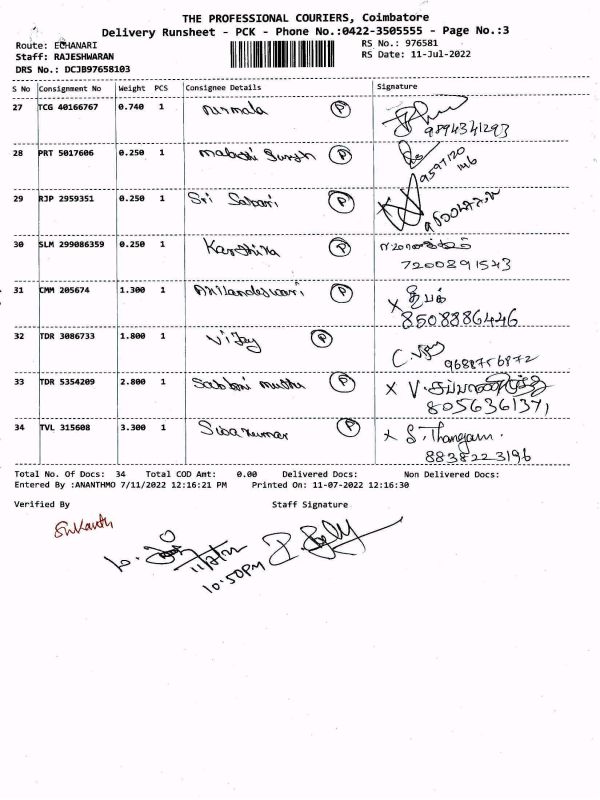 THE PROFESSIONAL COURIERS, Coimbatore
Delivery Runsheet - PCK - Phone No.:0422-3505555 - Page No.:3
Route: ECHANARI
RS No.: 976581
Staff: RAJESHWARAN
RS Date: 11-Jul-2022
DRS No.: DCJB97658103
S No Consignment No Weight PCS Consignee Details Signature
27 TCG 40166767 0.740 1 nirmala P
9894341293
28 PRT 5017606 0.250 1 P
9597120
146
29 RJP 2959351 0.250 1 Sri Sabari P
30 SLM 299086359 0.250 1 Karthika P
7200891543
31 CMM 205674 1.300 1 P X
8508886446
32 TDR 3086733 1.800 1 Vijay P
9688756872
33 TDR 5354209 2.800 1 P X
8056361371
34 TVL 315608 3.300 1 Sivakumar P X S. Thangam
8838223196
Total No. Of Docs: 34 Total COD Amt: 0.00 Delivered Docs: Non Delivered Docs:
Entered By :ANANTHMO 7/11/2022 12:16:21 PM Printed On: 11-07-2022 12:16:30
Verified By Staff Signature
Srikanth
10:50PM